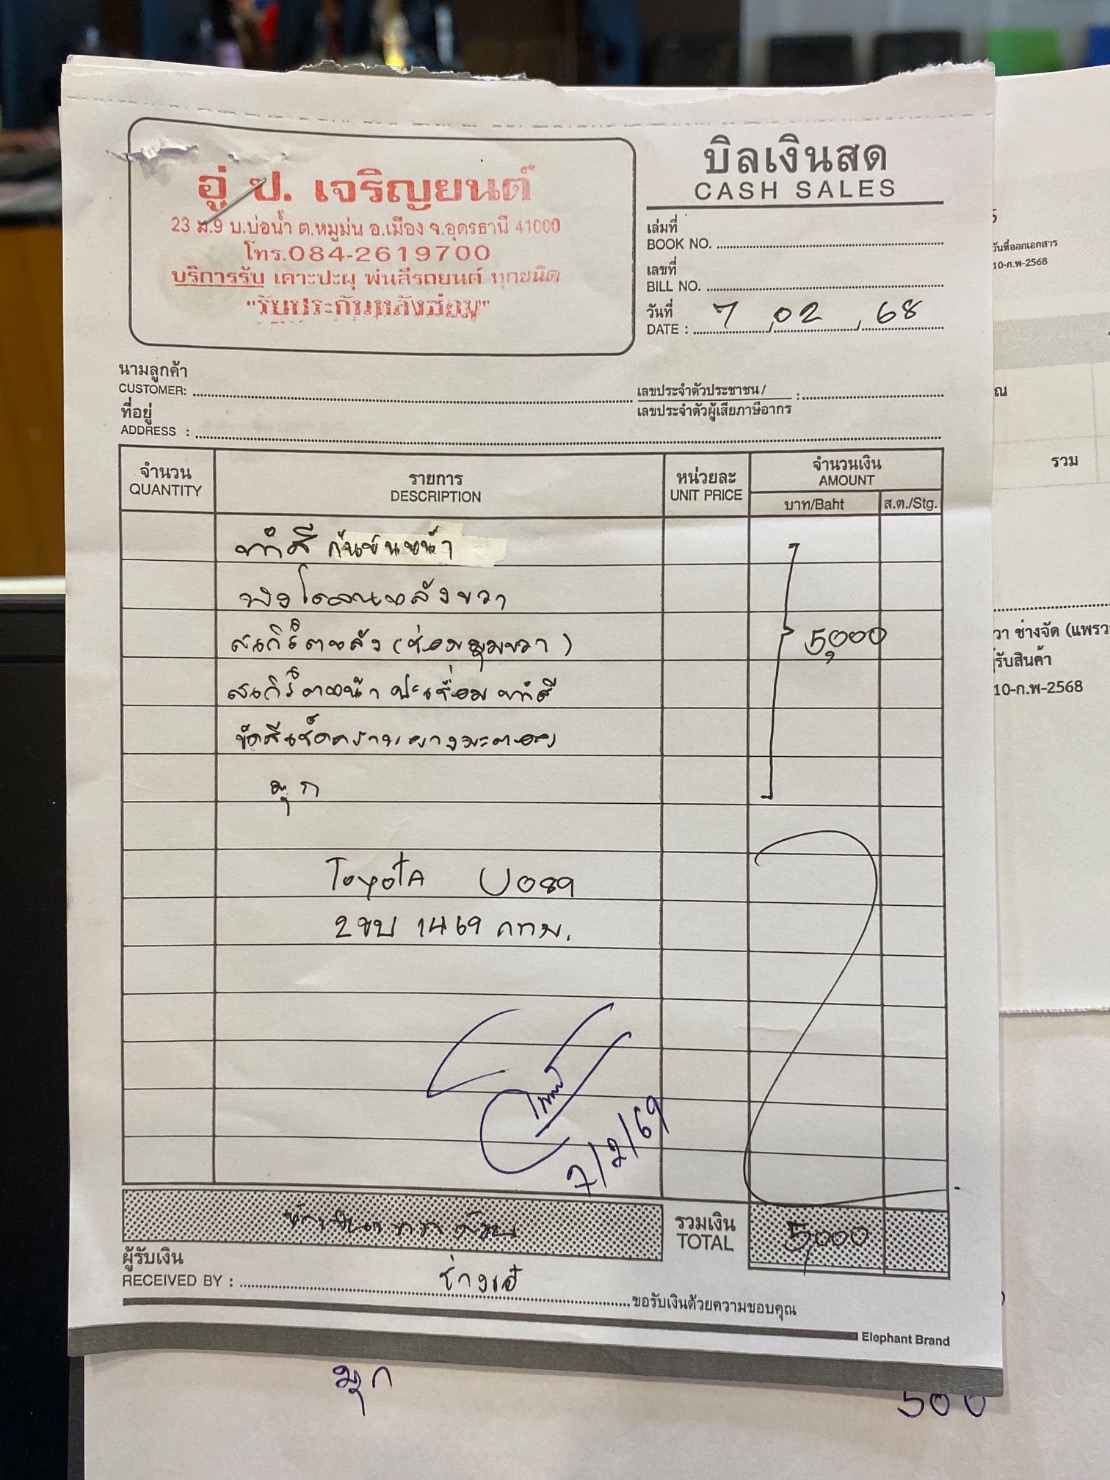 อู่ ป. เจริญยนต์
23 ม.9 บ.บ่อน้ำ ต.หมูม่น อ.เมือง จ.อุดรธานี 41000
โทร.084-2619700
บริการรับ เคาะปะผุ พ่นสีรถยนต์ ทุกชนิด
"รับประกันหลังซ่อม"
บิลเงินสด
CASH SALES
เล่มที่
BOOK NO.
เลขที่
BILL NO.
วันที่
DATE : 7 / 02 / 68
นามลูกค้า
CUSTOMER:
เลขประจำตัวประชาชน /
เลขประจำตัวผู้เสียภาษีอากร :
ที่อยู่
ADDRESS :
จำนวน
QUANTITY
รายการ
DESCRIPTION
หน่วยละ
UNIT PRICE
จำนวนเงิน
AMOUNT
บาท/Baht
ส.ต./Stg.
ทำสี กันชนหน้า
หลังขวา
สเกิร์ตหลัง (ซ่อมมุมขวา)
5,000
สเกิร์ตหน้า ปะเชื่อม ทำสี
ขัดสีเช็ดคราบยางมะตอย
มุก
Toyota
2ขบ 1469 กทม.
7/2/69
รวมเงิน
TOTAL
5,000
ผู้รับเงิน
RECEIVED BY :
ขอรับเงินด้วยความขอบคุณ
Elephant Brand
มุก
500
วันที่ออกเอกสาร
10-ก.พ-2568
รวม
วา ช่างจัด (แพรว
รับสินค้า
10-ก.พ-2568